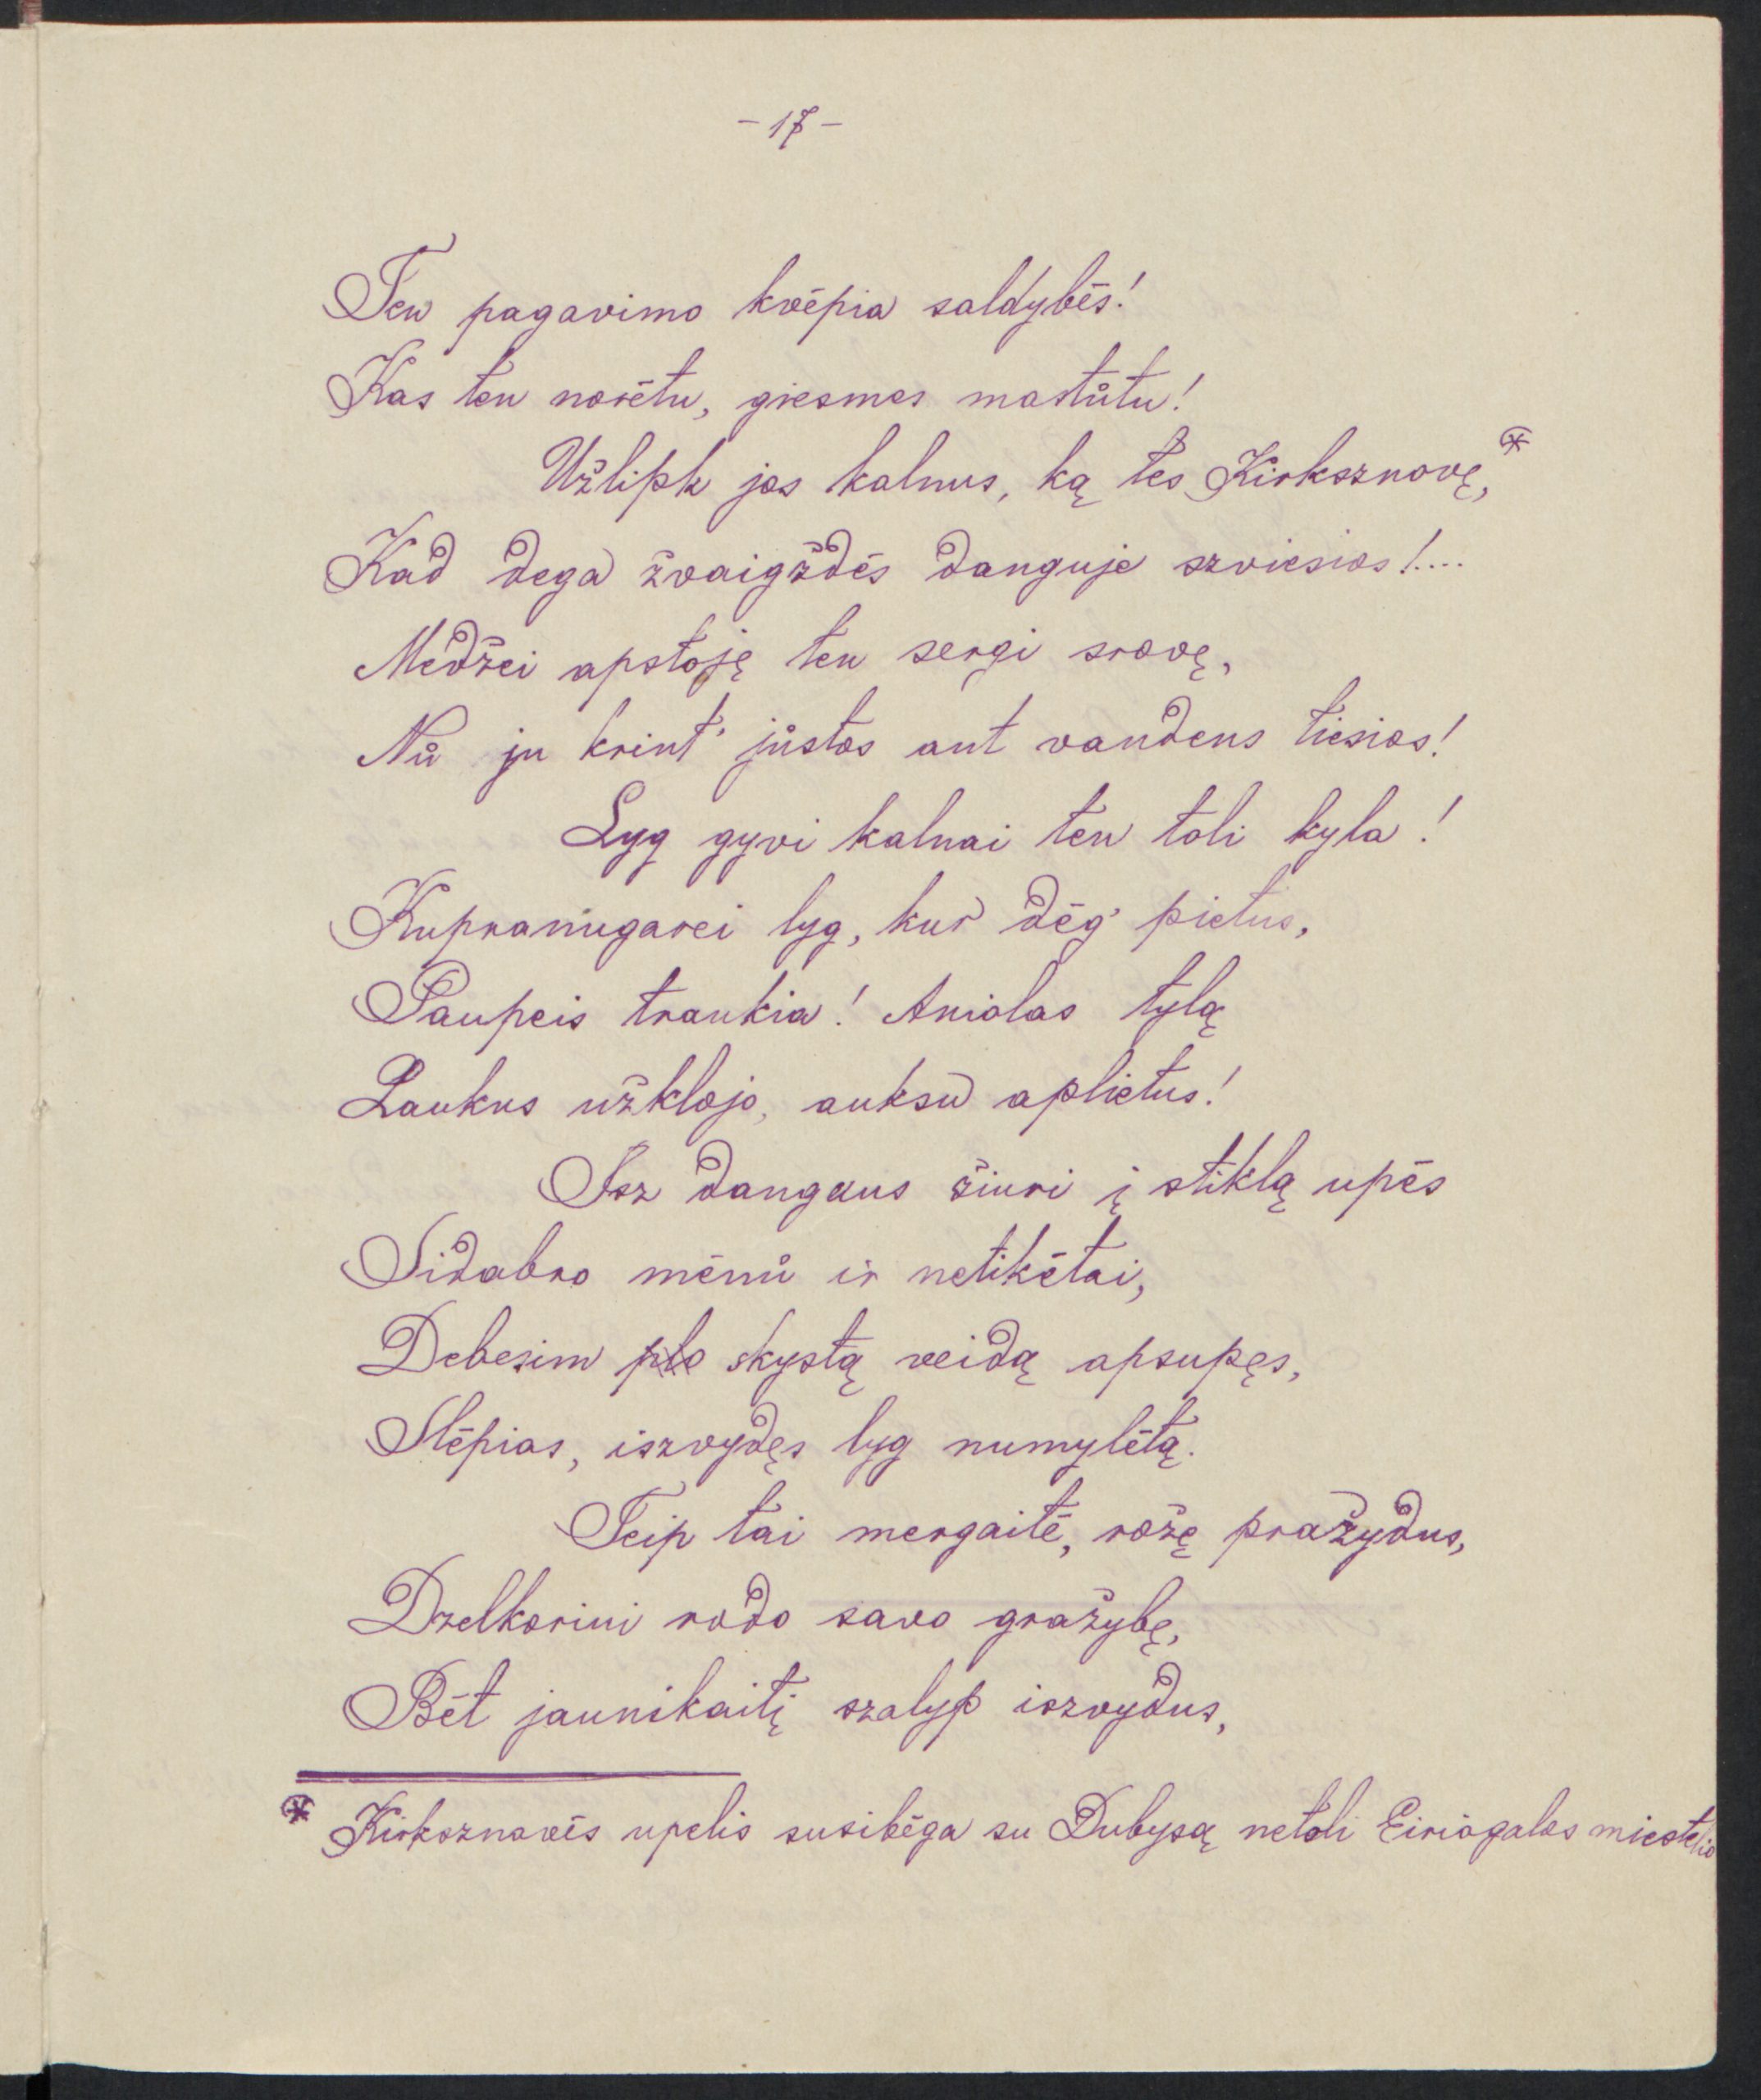 - 17 -
Ten pagavimo kvėpia saldybės!
Kas ten norėtu, giesmes mastůtu!
Užlipk jos kalnus, ką ties Kirksznovę,*
Kad dega žvaigždės danguje szviesios!....
Medžei apstoję ten sergi srovę,
Nů ju krint' jůstos ant vandens tiesios!
Lyg gyvi kalnai ten toli kyla!
Kupranugarei lyg, kur dėg' pietus,
Paupeis traukia! Aniolas tylą
Laukus užklojo, auksu aplietus!
Isz dangaus žiuri į stiklą upės
Sidabro mėnů ir netikėtai,
Debesim plo skystą veidą apsupęs,
Slėpias, iszvydęs lyg numylėtą.
Teip tai mergaitė, rožę pražydus,
Dzelkorini rodo savo gražybę,
Bėt jaunikaitį szalyp iszvydus,
* Kirksznovės upelis susibėga su Dubysą netoli Eiriogalos miestelio